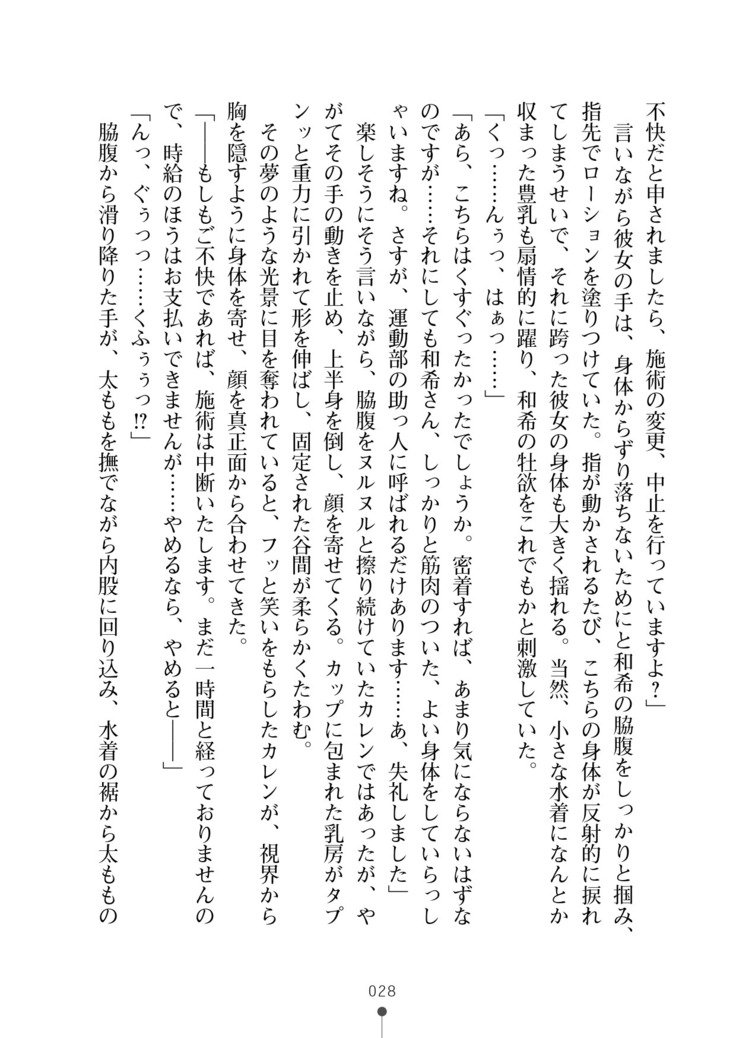 不快だと申されましたら、施術の変更、中止を行っていますよ？」
　言いながら彼女の手は、身体からずり落ちないためにと和希の脇腹をしっかりと掴み、
指先でローションを塗りつけていた。指が動かされるたび、こちらの身体が反射的に捩れ
てしまうせいで、それに跨った彼女の身体も大きく揺れる。当然、小さな水着になんとか
収まった豊乳も扇情的に躍り、和希の牡欲をこれでもかと刺激していた。
「くっ……んぅっ、はぁっ……」
「あら、こちらはくすぐったかったでしょうか。密着すれば、あまり気にならないはずな
のですが……それにしても和希さん、しっかりと筋肉のついた、よい身体をしていらっし
ゃいますね。さすが、運動部の助っ人に呼ばれるだけあります……あ、失礼しました」
　楽しそうにそう言いながら、脇腹をヌルヌルと擦り続けていたカレンではあったが、や
がてその手の動きを止め、上半身を倒し、顔を寄せてくる。カップに包まれた乳房がタプ
ンッと重力に引かれて形を伸ばし、固定された谷間が柔らかくたわむ。
　その夢のような光景に目を奪われていると、フッと笑いをもらしたカレンが、視界から
胸を隠すように身体を寄せ、顔を真正面から合わせてきた。
「――もしもご不快であれば、施術は中断いたします。まだ一時間と経っておりませんの
で、時給のほうはお支払いできませんが……やめるなら、やめると――」
「んっ、ぐぅっっ……くふぅぅっ!?」
　脇腹から滑り降りた手が、太ももを撫でながら内股に回り込み、水着の裾から太ももの
028